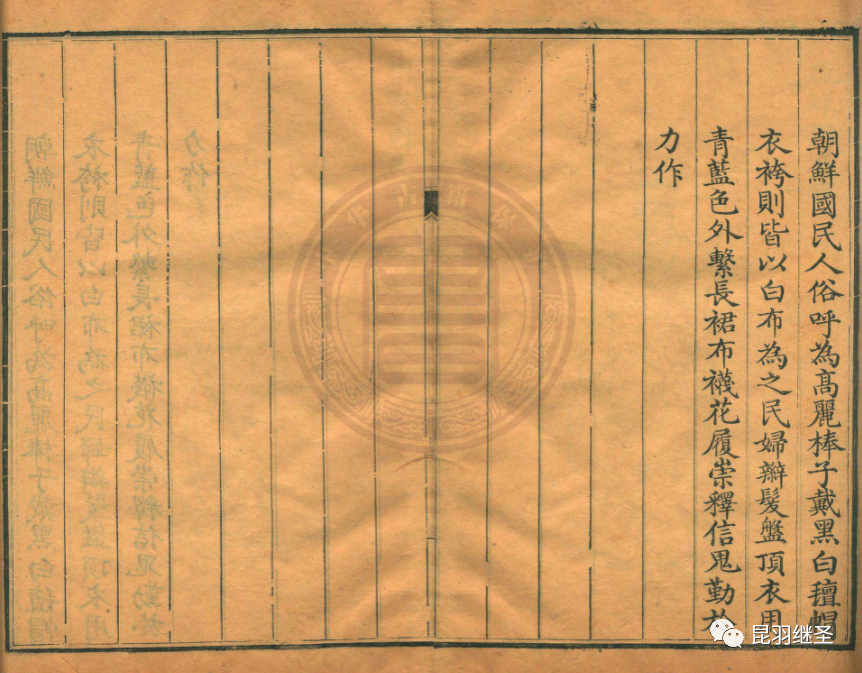 朝鮮國民人俗呼為高麗棒子戴黑白氊帽
衣袴則皆以白布為之民婦辮髮盤頂衣用
青藍色外繫長裙布襪花履崇釋信鬼勤於
力作
昆羽继圣